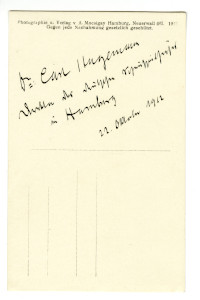 Photographie u. Verlag v. A. Mocsigay Hamburg, Neuerwall
Gegen jede Nachahmung gesetzlich geschützt.
Dr. Carl Hagemann
Direktor des Deutschen Schauspielhauses
in Hamburg
22. Oktober 1912